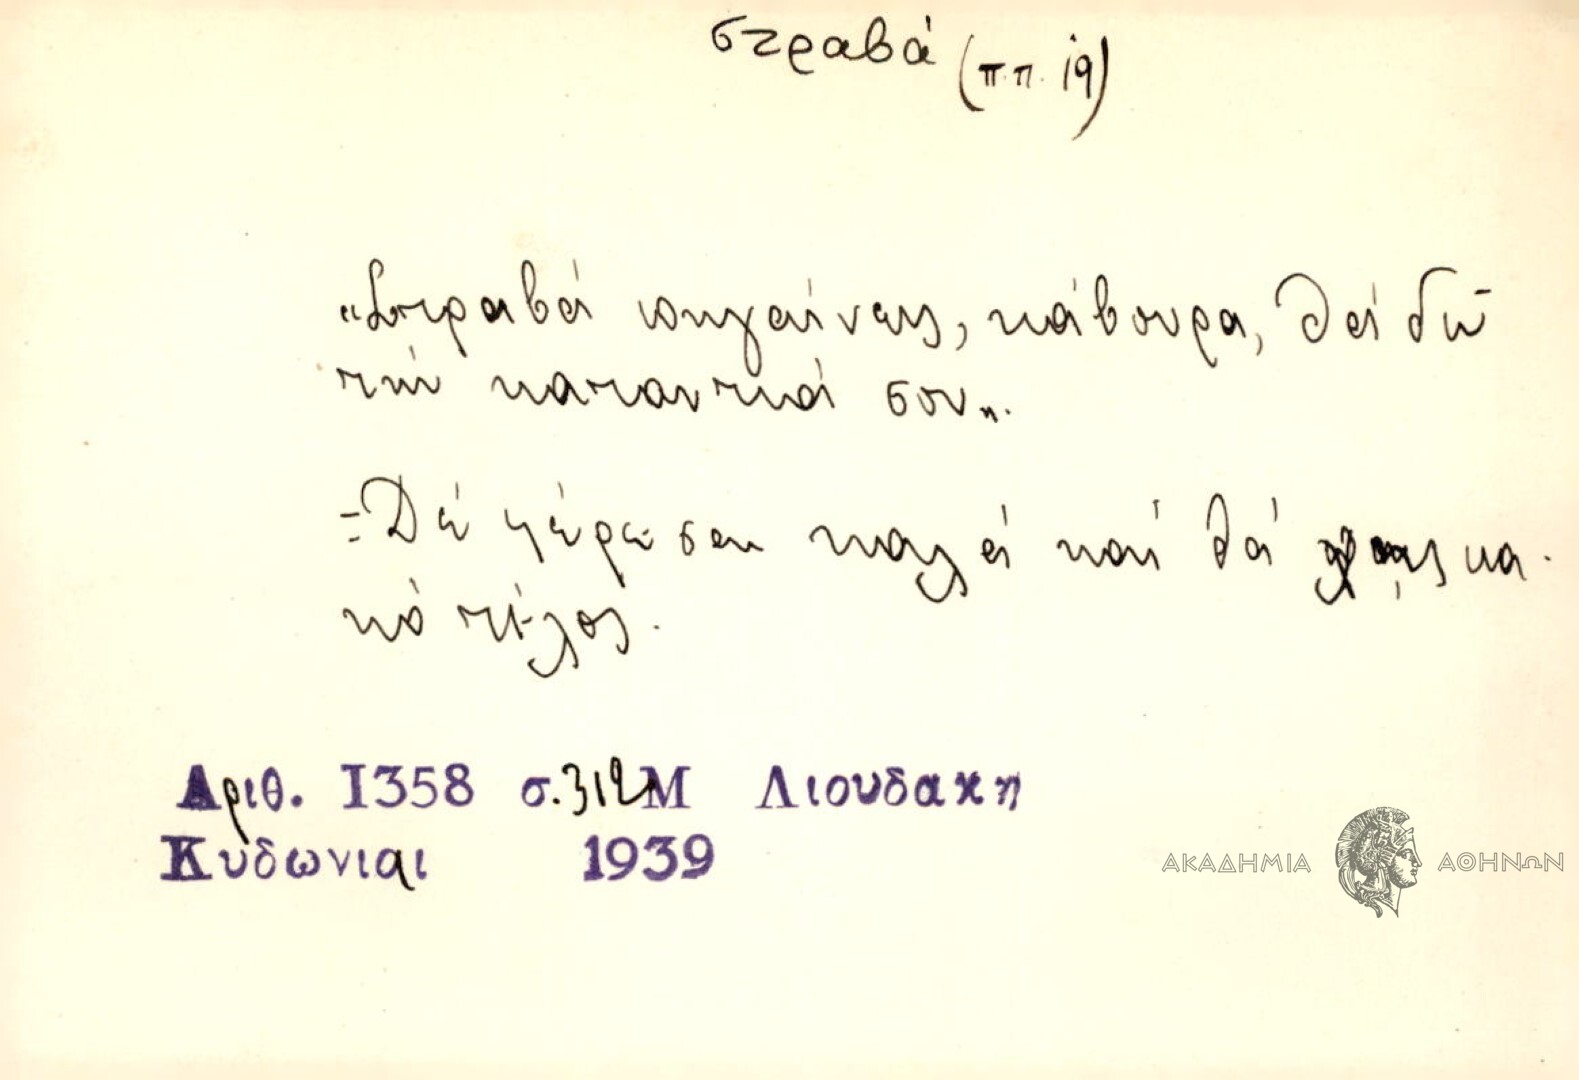 στραβά (π.π. 19)
"Στραβά πηγαίνεις, κάβουρα, θά δῶ
τήν καταντιά σου".
=Δέ φέρεσαι καλά καί θά ἔχῃς κα-
κό τέλος.
Αριθ. 1358 σ. 312 Μ Λιουδακη
Κυδωνιαι 1939
ΑΚΑΔΗΜΙΑ ΑΘΗΝΩΝ